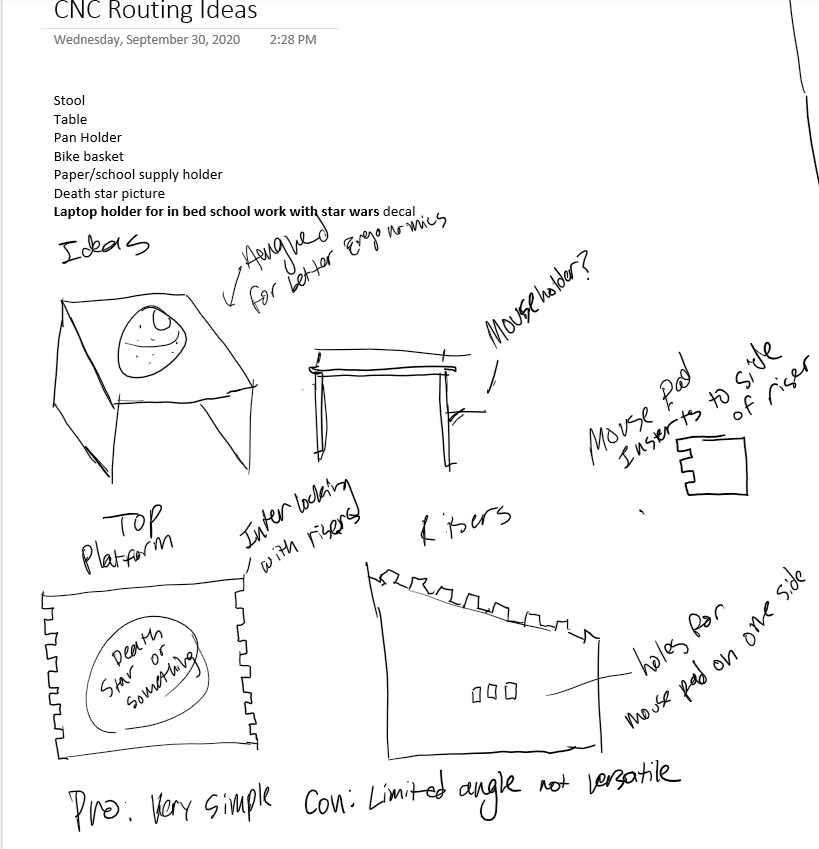 CNC Routing Ideas
Wednesday, September 30, 2020 2:28 PM
Stool
Table
Pan Holder
Bike basket
Paper/school supply holder
Death star picture
Laptop holder for in bed school work with star wars decal
Ideas
for better Ergonomics
Mouseholder?
Mouse Pad
Inserts to side
of riser
Top
Platform
Interlocking
with risers
Risers
Death
Star or
something
holes for
mouse pad on one side
Pro: Very simple Con: Limited angle not versatile